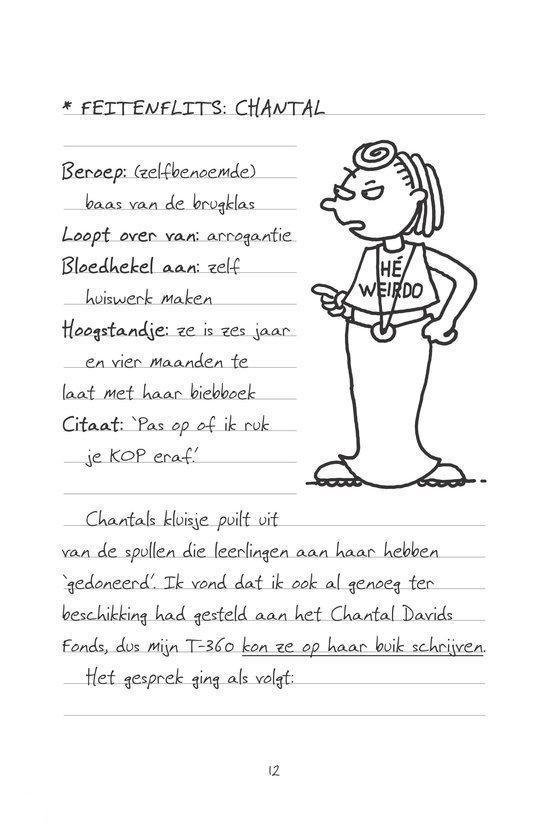 * FEITENFLITS: CHANTAL
Beroep: (zelfbenoemde)
baas van de brugklas
Loopt over van: arrogantie
Bloedhekel aan: zelf
huiswerk maken
Hoogstandje: ze is zes jaar
en vier maanden te
laat met haar biebboek
Citaat: ‘Pas op of ik ruk
je KOP eraf.’
HÉ
WEIRDO
Chantals kluisje puilt uit
van de spullen die leerlingen aan haar hebben
‘gedoneerd’. Ik vond dat ik ook al genoeg ter
beschikking had gesteld aan het Chantal Davids
Fonds, dus mijn T-360 kon ze op haar buik schrijven.
Het gesprek ging als volgt:
12